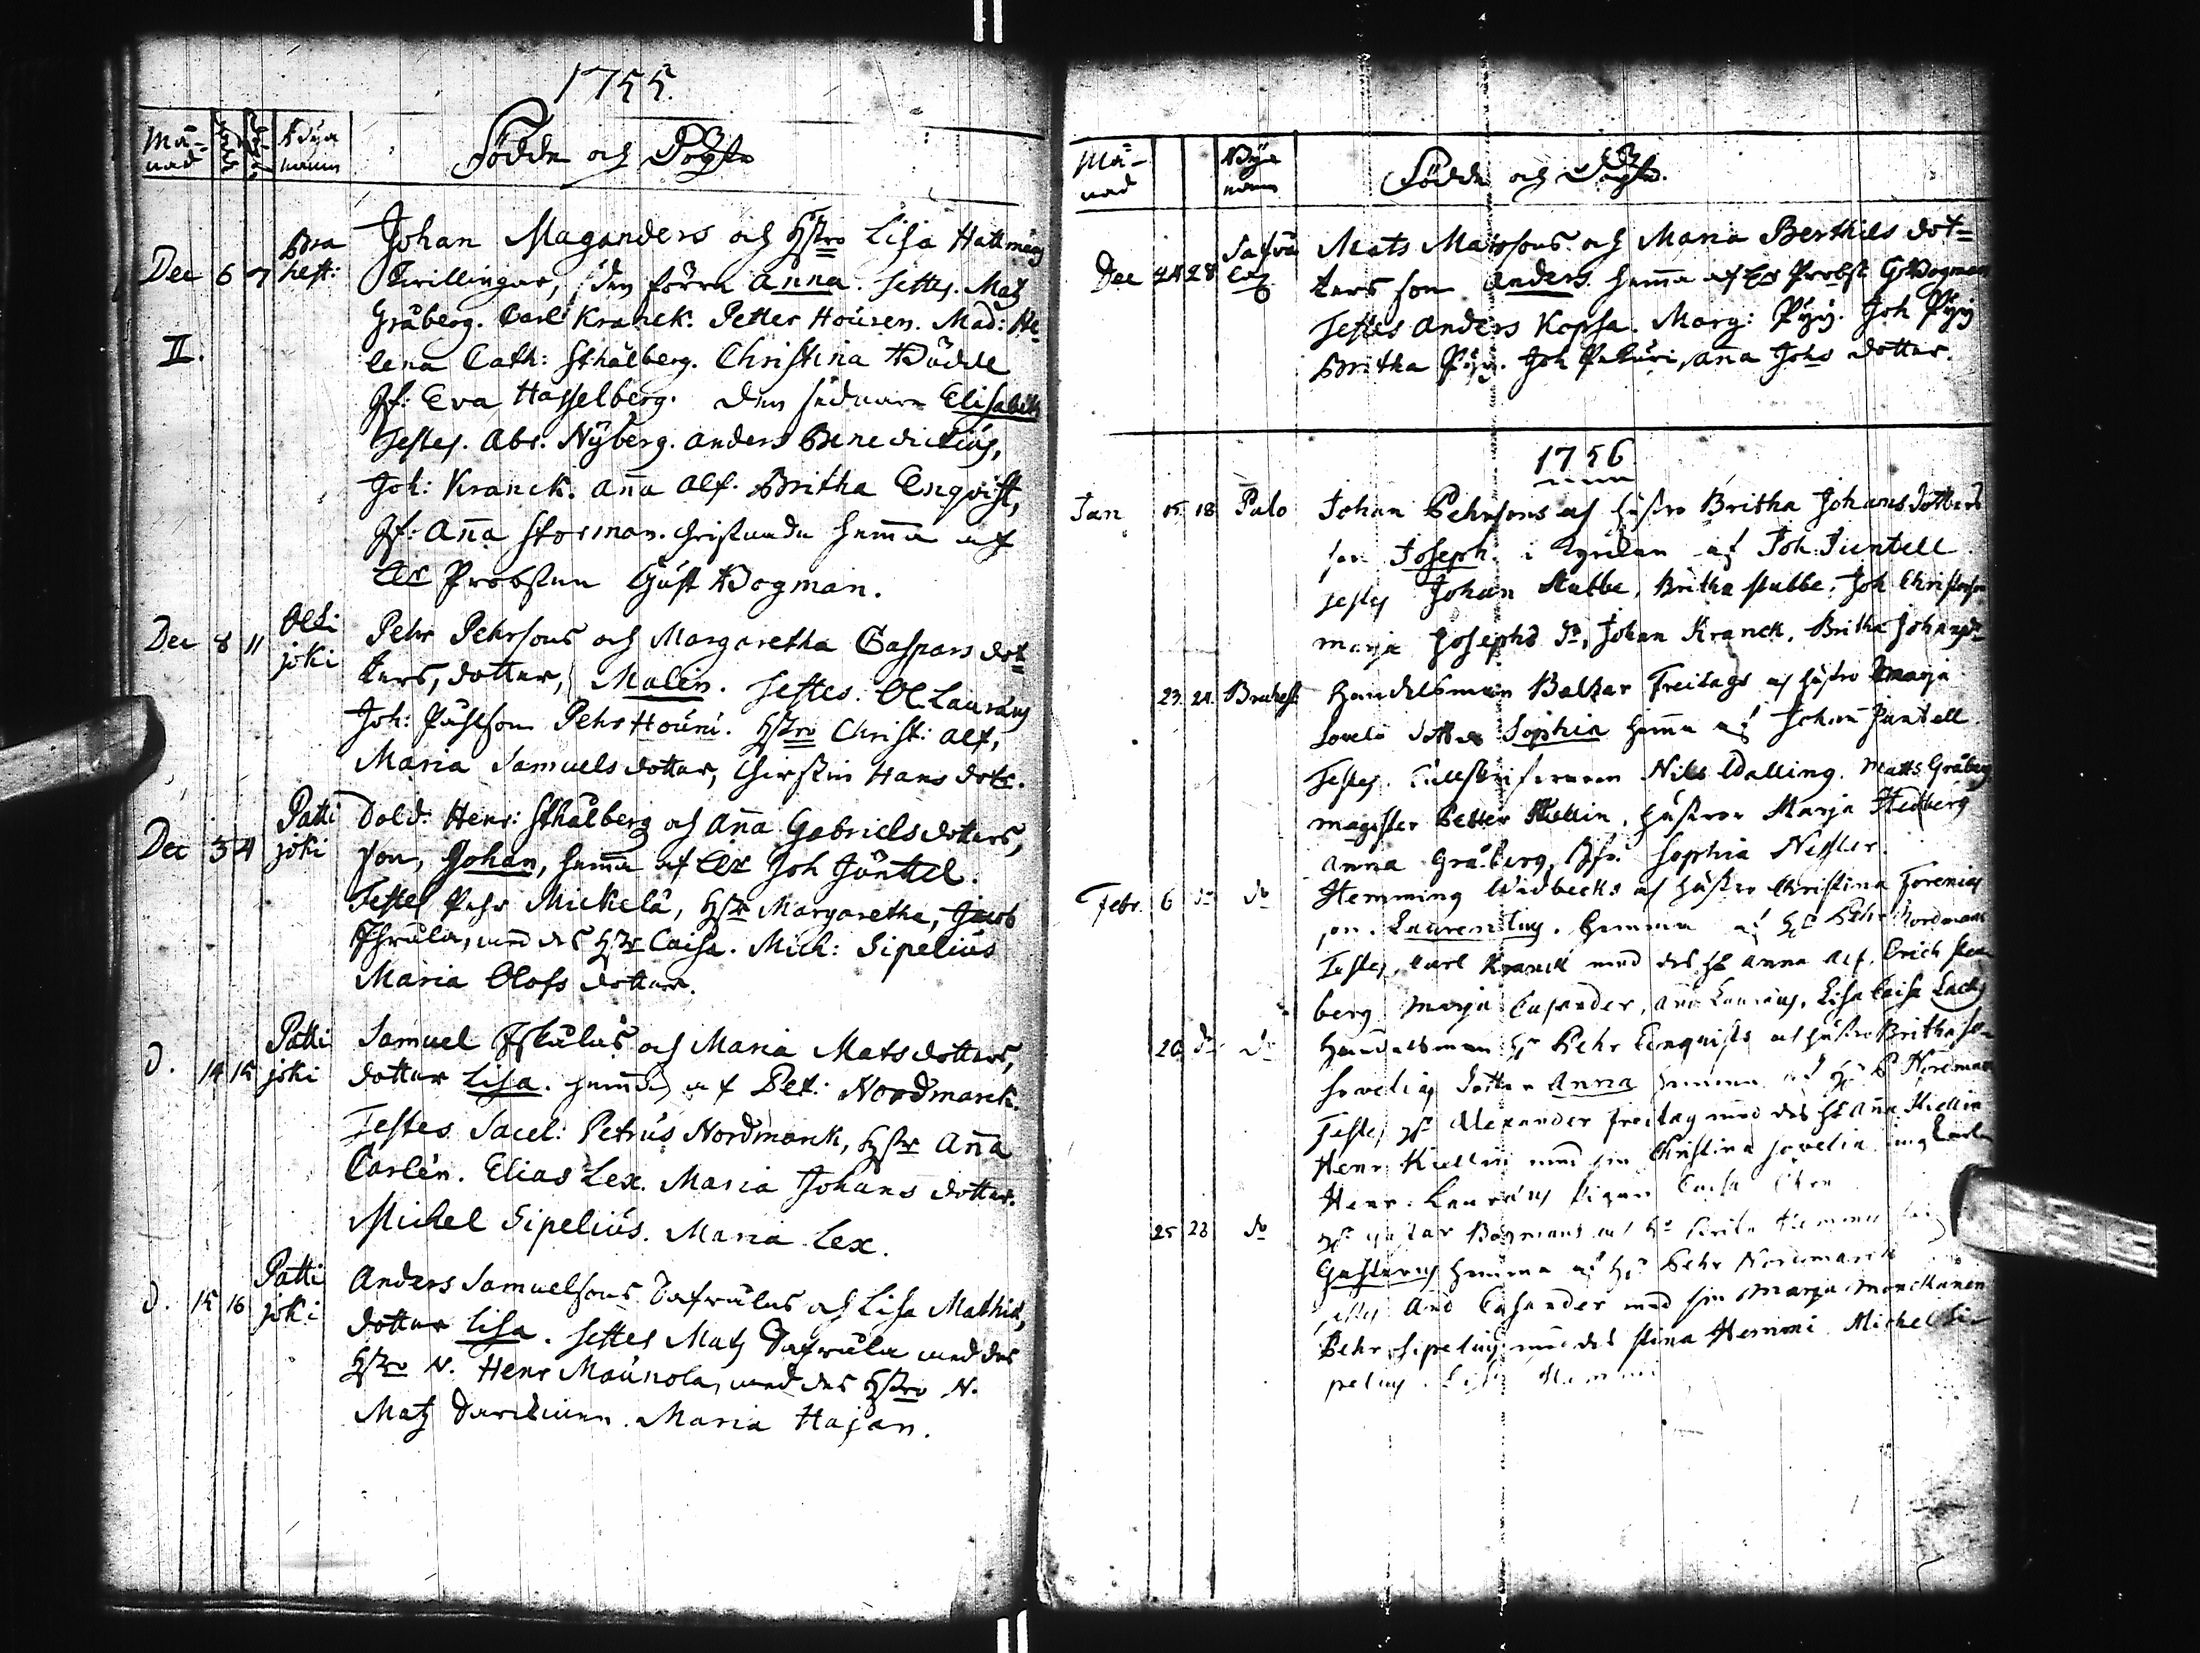 1755.
Må-
nad
Bya
namn
Födde och Döpte
Johan Maganders och Hstro Lisa Hattmans
Dec 6 7 Bra
hest: Tvillingar, den förra Anna. Testes. Matz
Gråberg. Carl Kranck. Petter Houren. Mad: He-
II. lena Cath: Sthålberg. Christina Wådde
Jf: Eva Hasselberg. den sednare Elisabeth
Testes. Abr. Nyberg. Anders Benedictius,
Joh: Kranck. Anna Alf. Britha Enqvist,
Jf: Anna Storman. Christnade hemma af
Ex Probsten Gust Bogman.
Dec 8 11 Oli
joki Pehr Pehrsons och Margaretha Caspars dot-
ters, dotter, Malin. Testes. Ol. Lauræus
Joh: Påhlson Pehr Houni. Hstro Christ: Alf,
Maria Samuels dotter, Chirstin Hans dotr.
Dec 3 4 Patti
joki Sold: Henr: Sthålberg och Anna Gabriels doters,
son, Johan, hemma af Joh Juntel.
Testes Pehr Mickelä, Hstr Margaretha, Jacob
med des Hstr Caisa. Mich: Sipelius
Maria Olofs dotter.
D. 14 15 Patti
joki Samuel och Maria Mats dotters,
dotter Lisa. hemdöpt af Pet: Nordmark.
Testes Sacel: Petrus Nordmark, Hstr Anna
Carlén. Elias Lex. Maria Johans dotter.
Michel Sipelius. Maria Lex.
D. 15 16 Patti
joki Anders Samuelsons och Lisa Mathid,
dotter Lisa. Testes Matz med des
Hstro N. Henr Maunola, med des Hstro N.
Matz Maria Hajan.
Må-
nad
Bya
namn
Födde och Döpte.
Dec 24 28 Mats Matssons och Maria Berthils dot-
ters son Anders. hemma af Probst G Bogman
Testes Anders Kopsa. Marg: Pyy. Joh Pyy
Britha Pyy. Joh Anna Johs dotter.
1756
Jan 15 18 Palo Johan Pehrsons och hustro Britha Johans dotters
son Joseph. i Kyrkan af Joh. Juntell
Testes Johan Stubbe, Britha Stubbe, Joh Christerson
marja Josephs dr, Johan Kranck, Britha Johansdr
23. 24. Brahest Handelsman Baltzar Freitags och hustro Marja
dotter Sophia hemma af Johan Juntell
Testes. Nils Walling. Matts Gråberg
magister Petter Kiellin, hustron Marja Hedberg
Anna Gråberg, Jfr: Sophia Nessler.
Febr. 6 do do Hemming Widbecks och hustro Christina Forenius
son. Laurentius. hemma af Hr Pehr Nordmark
Testes, Carl Kranck med des hst Anna Alf. Erich
berg Marja Casander, And Lauræus, Lisa Caisa
20 do do Handelsman Hr Pehr Enquists och hustro Britha
dotter Anna hemma af Hr P Nordmark
Testes Hr Alexander Freitag med des hst Anna Kiellin
Henr Kiellin med sin Christina
Henr. Lauræus Pigan Caisa
25 28 do Hr Gustav Bogmans och Hr
Gustavus hemma af Hr Pehr Nordmarck
Testes And Casander med sin Marja Monckunen
Pehr Sipelius med des Stina Hemmi Michel Si-
pelius.